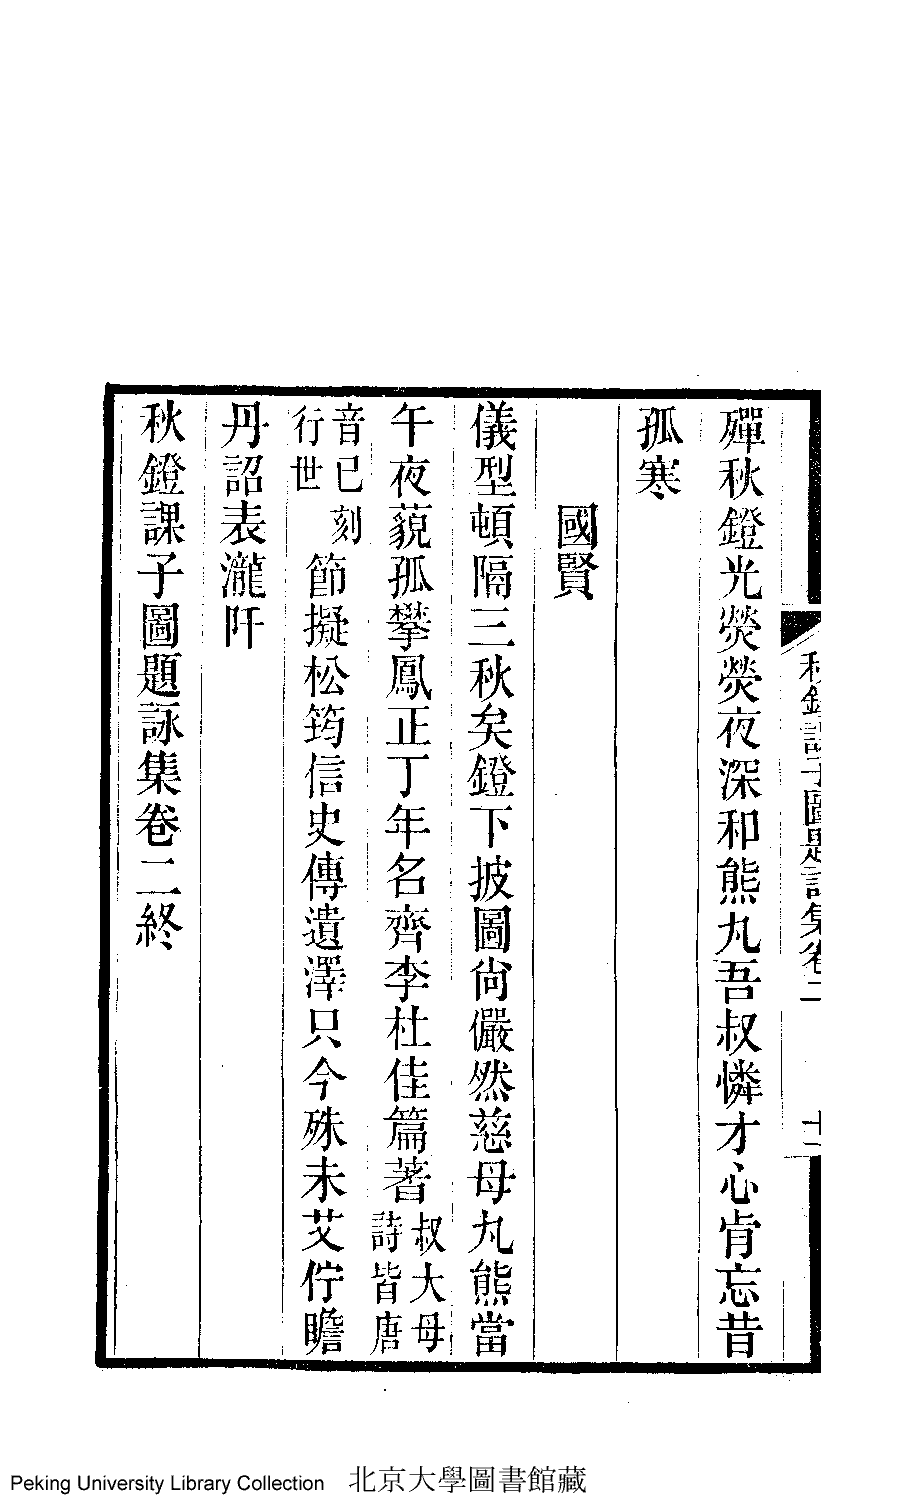 秋鐙課子圖題詠集卷二
十二
殫秋鐙光熒熒夜深和熊丸吾叔憐才心肯忘昔
孤寒
國賢
儀型頓隔三秋矣鐙下披圖尙儼然慈母丸熊當
午夜藐孤攀鳳正丁年名齊李杜佳篇著叔大母
詩皆唐
音已刻
行世節擬松筠信史傳遺澤只今殊未艾佇瞻
丹詔表瀧阡
秋鐙課子圖題詠集卷二終
Peking University Library Collection 北京大學圖書館藏